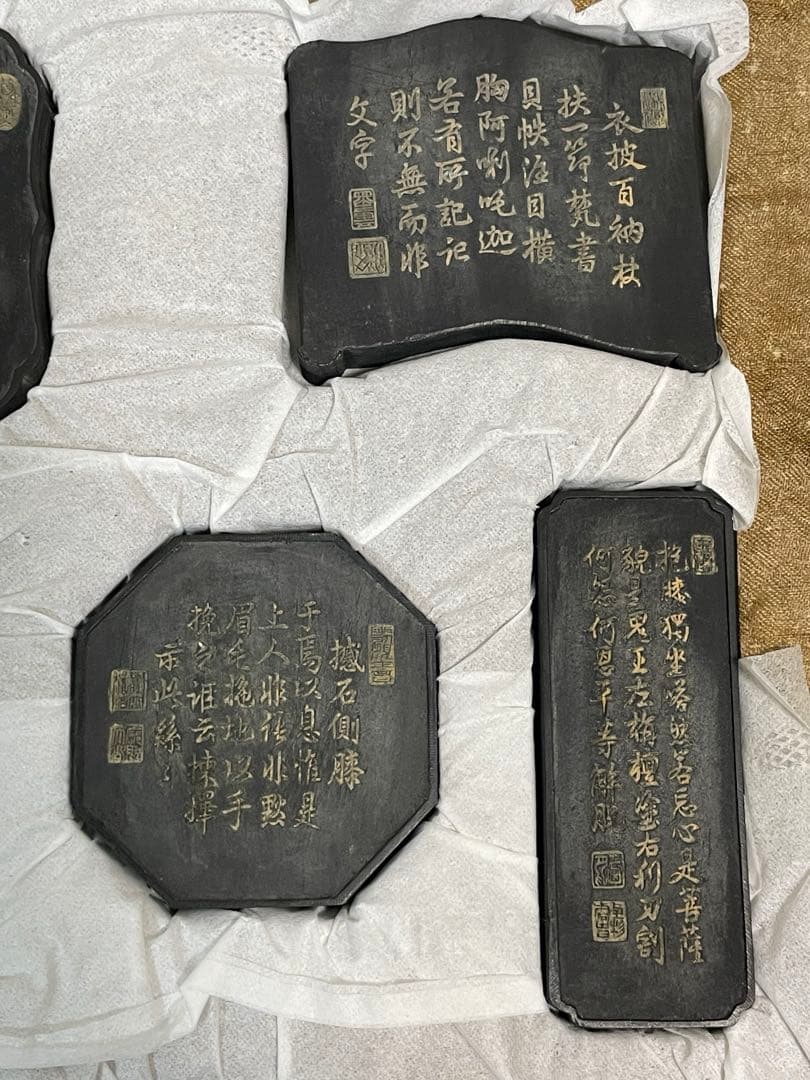 衣披百衲杖
扶一筇梵書
貝帙注目橫
胸阿唎吒迦
若有所記記
則不無而非
文字
撼石側膝
于焉以息惟是
上人非語非默
眉毛拖地以手
挽之誰云揀擇
示此絲〻
抱膝獨坐嗒然若忘心是菩薩
貌是鬼王左旃檀塗右利刃割
何怨何恩平等解脫